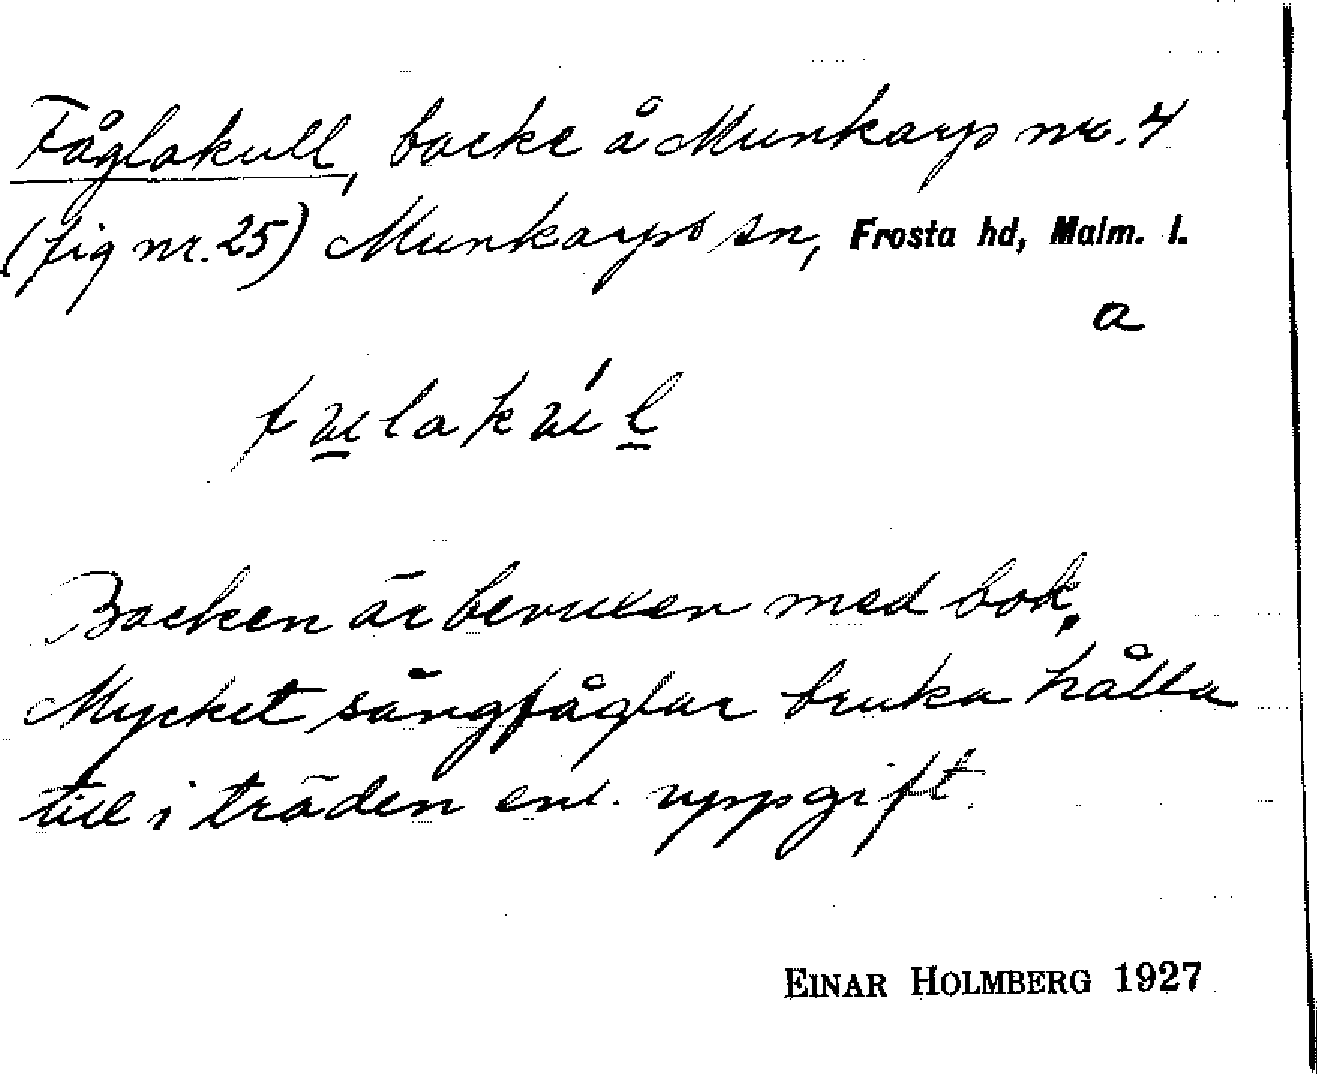 Fåglakull, backe å Munkarp nr. 4
(fig nr. 25) Munkarps sn, Frosta hd, Malm. l.
a
Backen är bevuxen med bok.
Mycket sångfåglar bruka hålla
till i träden enl. uppgift.
EINAR HOLMBERG 1927